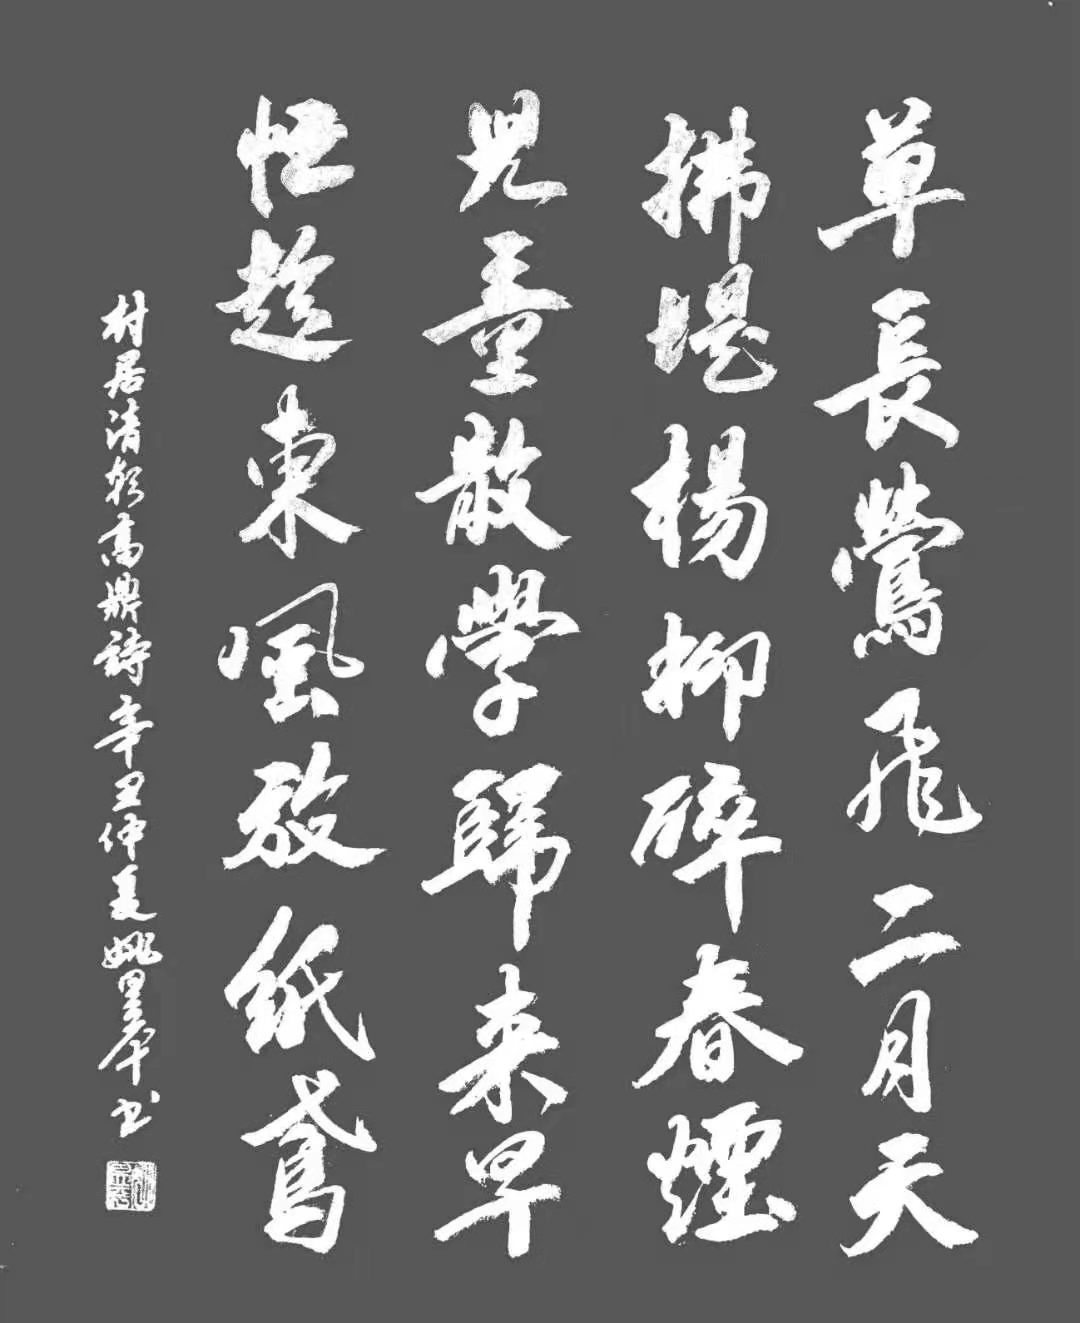 草長鶯飛二月天
拂堤楊柳碎春煙
兒童散學歸来早
忙趁東風放紙鳶
村居清朝高鼎詩辛丑仲夏姚书